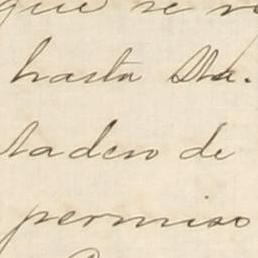 que se
hasta Sta.
tadero de
permiso